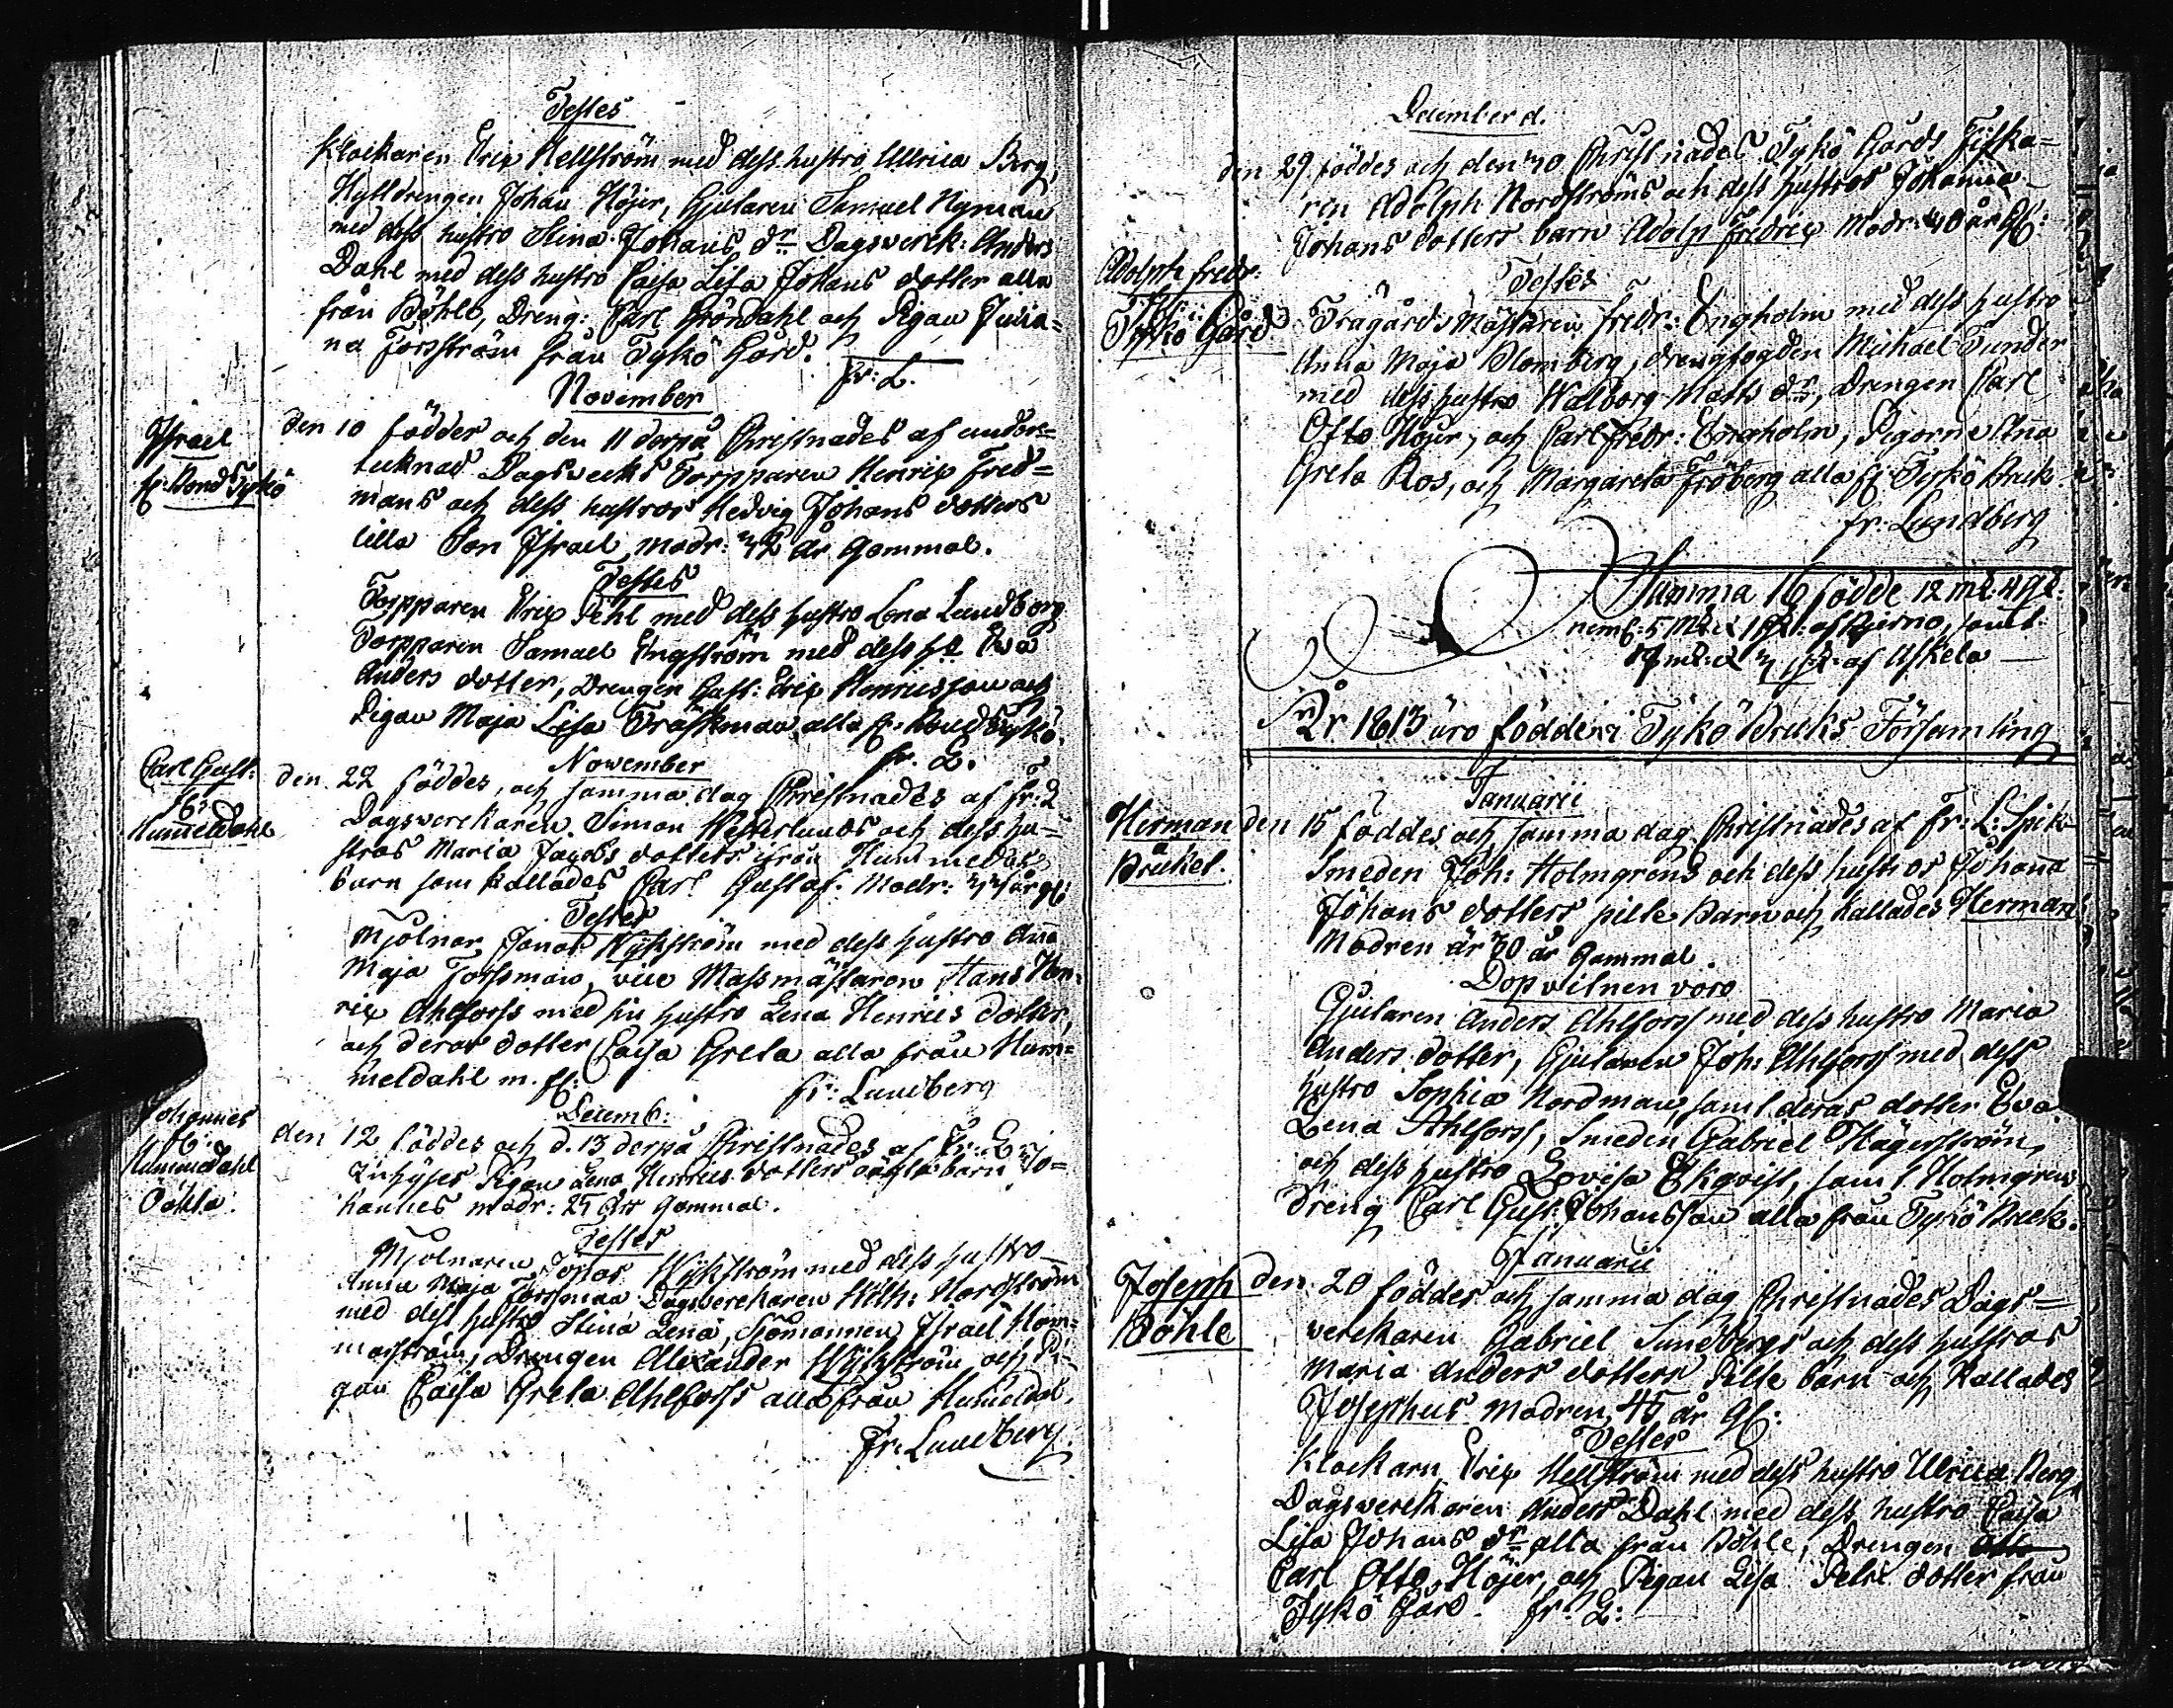 Testes
Klockaren Eric Hellström med dess hustro Ullrica Berg,
Hyttdrengen Johan Höjer, Gjutaren Samuel Nyman
med dess hustro Stina Johans dr. Dagsverck: Anders
Dahl med dess hustro Caisa Lisa Johans dotter alla
från Böhle, Dreng: Carl Gröndahl och Pigan Julia=
na Forsström från Tykö Gård.
fr: L.
November
Israel
fr: Bond Tykö
den 10 föddes och den 11 derpå Christnades af under=
tecknad Dagsvecks Torpparen Henric Fred=
mans och dess hustros Hedvig Johans dotters
lilla Son Israel, modr: 42 år gammal.
Testes
Torpparen Eric Pehl med dess hustro Lena Lundborg
Torpparen Samuel Engström med dess h. Eva
Anders dotter, Drengen Gust: Eric Henricsson och
Pigan Maja Lisa Träskman alla fr: Bond Tykö.
fr. L.
November
Carl Gust:
Hummeldahl
den 22 föddes, och samma dag Christnades af fr: L
Dagsverckaren Simon Westerlunds och dess hu=
stros Maria Jacobs dotters ifrån Hummeldahl
barn som kallades Carl Gustaf. Modr: år gl:
Testes
Mjölnar Jonas Wykström med dess hustro Anna
Maja Forssman, vice Massmästaren Hans Hen=
ric Ahlforss med sin hustro Lena Henrics dotter,
och deras dotter Caisa Greta alla från Hum=
meldahl m. fl:
fr: Lundberg
Decemb:
Johannes
Hummeldahl
Oächta.
den 12 föddes och d. 13 derpå Christnades af Fr: L.
Inhyses Pigan Lena Henrics dotters oächta barn Jo=
hannes modr: 25 års gammal.
Testes
Mjölnaren Jonas Wykström med dess hustro
Anna Maja Forssman Dagsverckaren Wilh: Nordström
med dess hustro Stina Lena, Sjömannen Israel Hom=
marström, Drengen Alexander Wykström och Pi=
gan Caisa Greta Ahlforss alla från Hummeldal.
Fr: Lundberg
December d.
den 29 föddes och den 30 Christnades Tykö Gårds Fiska=
ren Adolph Nordströms och dess hustros Johanna
Johans dotters barn Adolp Fredric Modr: 40 år gl:
Adolph fredr:
Tykö Gård
Testes
Trägårds Mästaren fredr: Engholm med dess hustro
Anna Maja Blomberg, drengfogden Michael Tunder
med dess hustro Walborg Matts dr, Drengen Carl
Otto Höjer, och Carl fredr: Engholm, Pigorne Anna
Greta Ros, och Margareta Fröberg alla fr: Tykö Bruk.
fr: Lundberg
Summa 16 födde 12 mk: 4 qk.
nemb: 5 mk: 1 qk: af Bjerno, samt
mk: qk: af Uskela
År 1813 äro födde i Tykö Bruks Församling
Januarii
Herman
Bruket.
den 15 föddes och samma dag Christnades af Fr: L: Spik
Smeden Joh: Holmgrens och dess hustros Johanna
Johans dotters pilte Barn och kallades Herman
Modren är 30 år gammal.
Dop vitnen voro
Gjutaren Anders Ahlforss med dess hustro Maria
Anders dotter, Gjutaren Joh: Ahlforss med dess
hustro Sophia Nordman, samt deras dotter Eva
Lena Ahlforss, Smeden Gabriel Hägerström
och dess hustro Lovisa Ekqvist, samt Holmgrens
Dreng Carl Gust: Johansson alla från Tykö Bruk.
Januarii
Joseph
Böhle
den 20 föddes och samma dag Christnades Dags=
verckaren Gabriel Sundbergs och dess hustros
Maria Anders dotters Pilte barn och Kallades
Josephus modren 45 år gl:
Testes
Klockarn Eric Hellström med dess hustro Ulrica Berg,
Dagsverckaren Anders Dahl med dess hustro Caisa
Lisa Johans dr alla från Böhle, Drengen
Carl Otto Höjer, och Pigan Lisa Petri dotter från
Tykö Gård. fr: L: